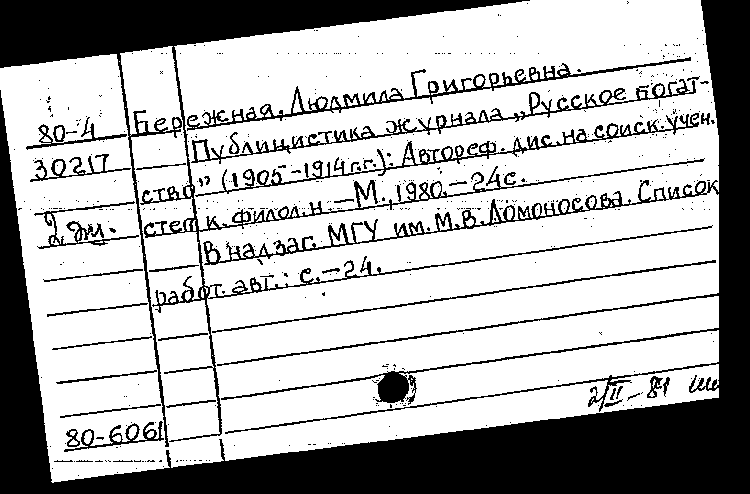 80-4 Бережная, Людмила Григорьевна.
30217 Публицистика журнала „Русское богат-
ство” (1905-1914г.г.): Автореф. дис. на соиск. учен.
2 степ к. филол. н. — М., 1980. — 24с.
В надзаг. МГУ им. М.В. Ломоносова. Список
работ. авт.: с. — 24.
80-6061
2/II - 81